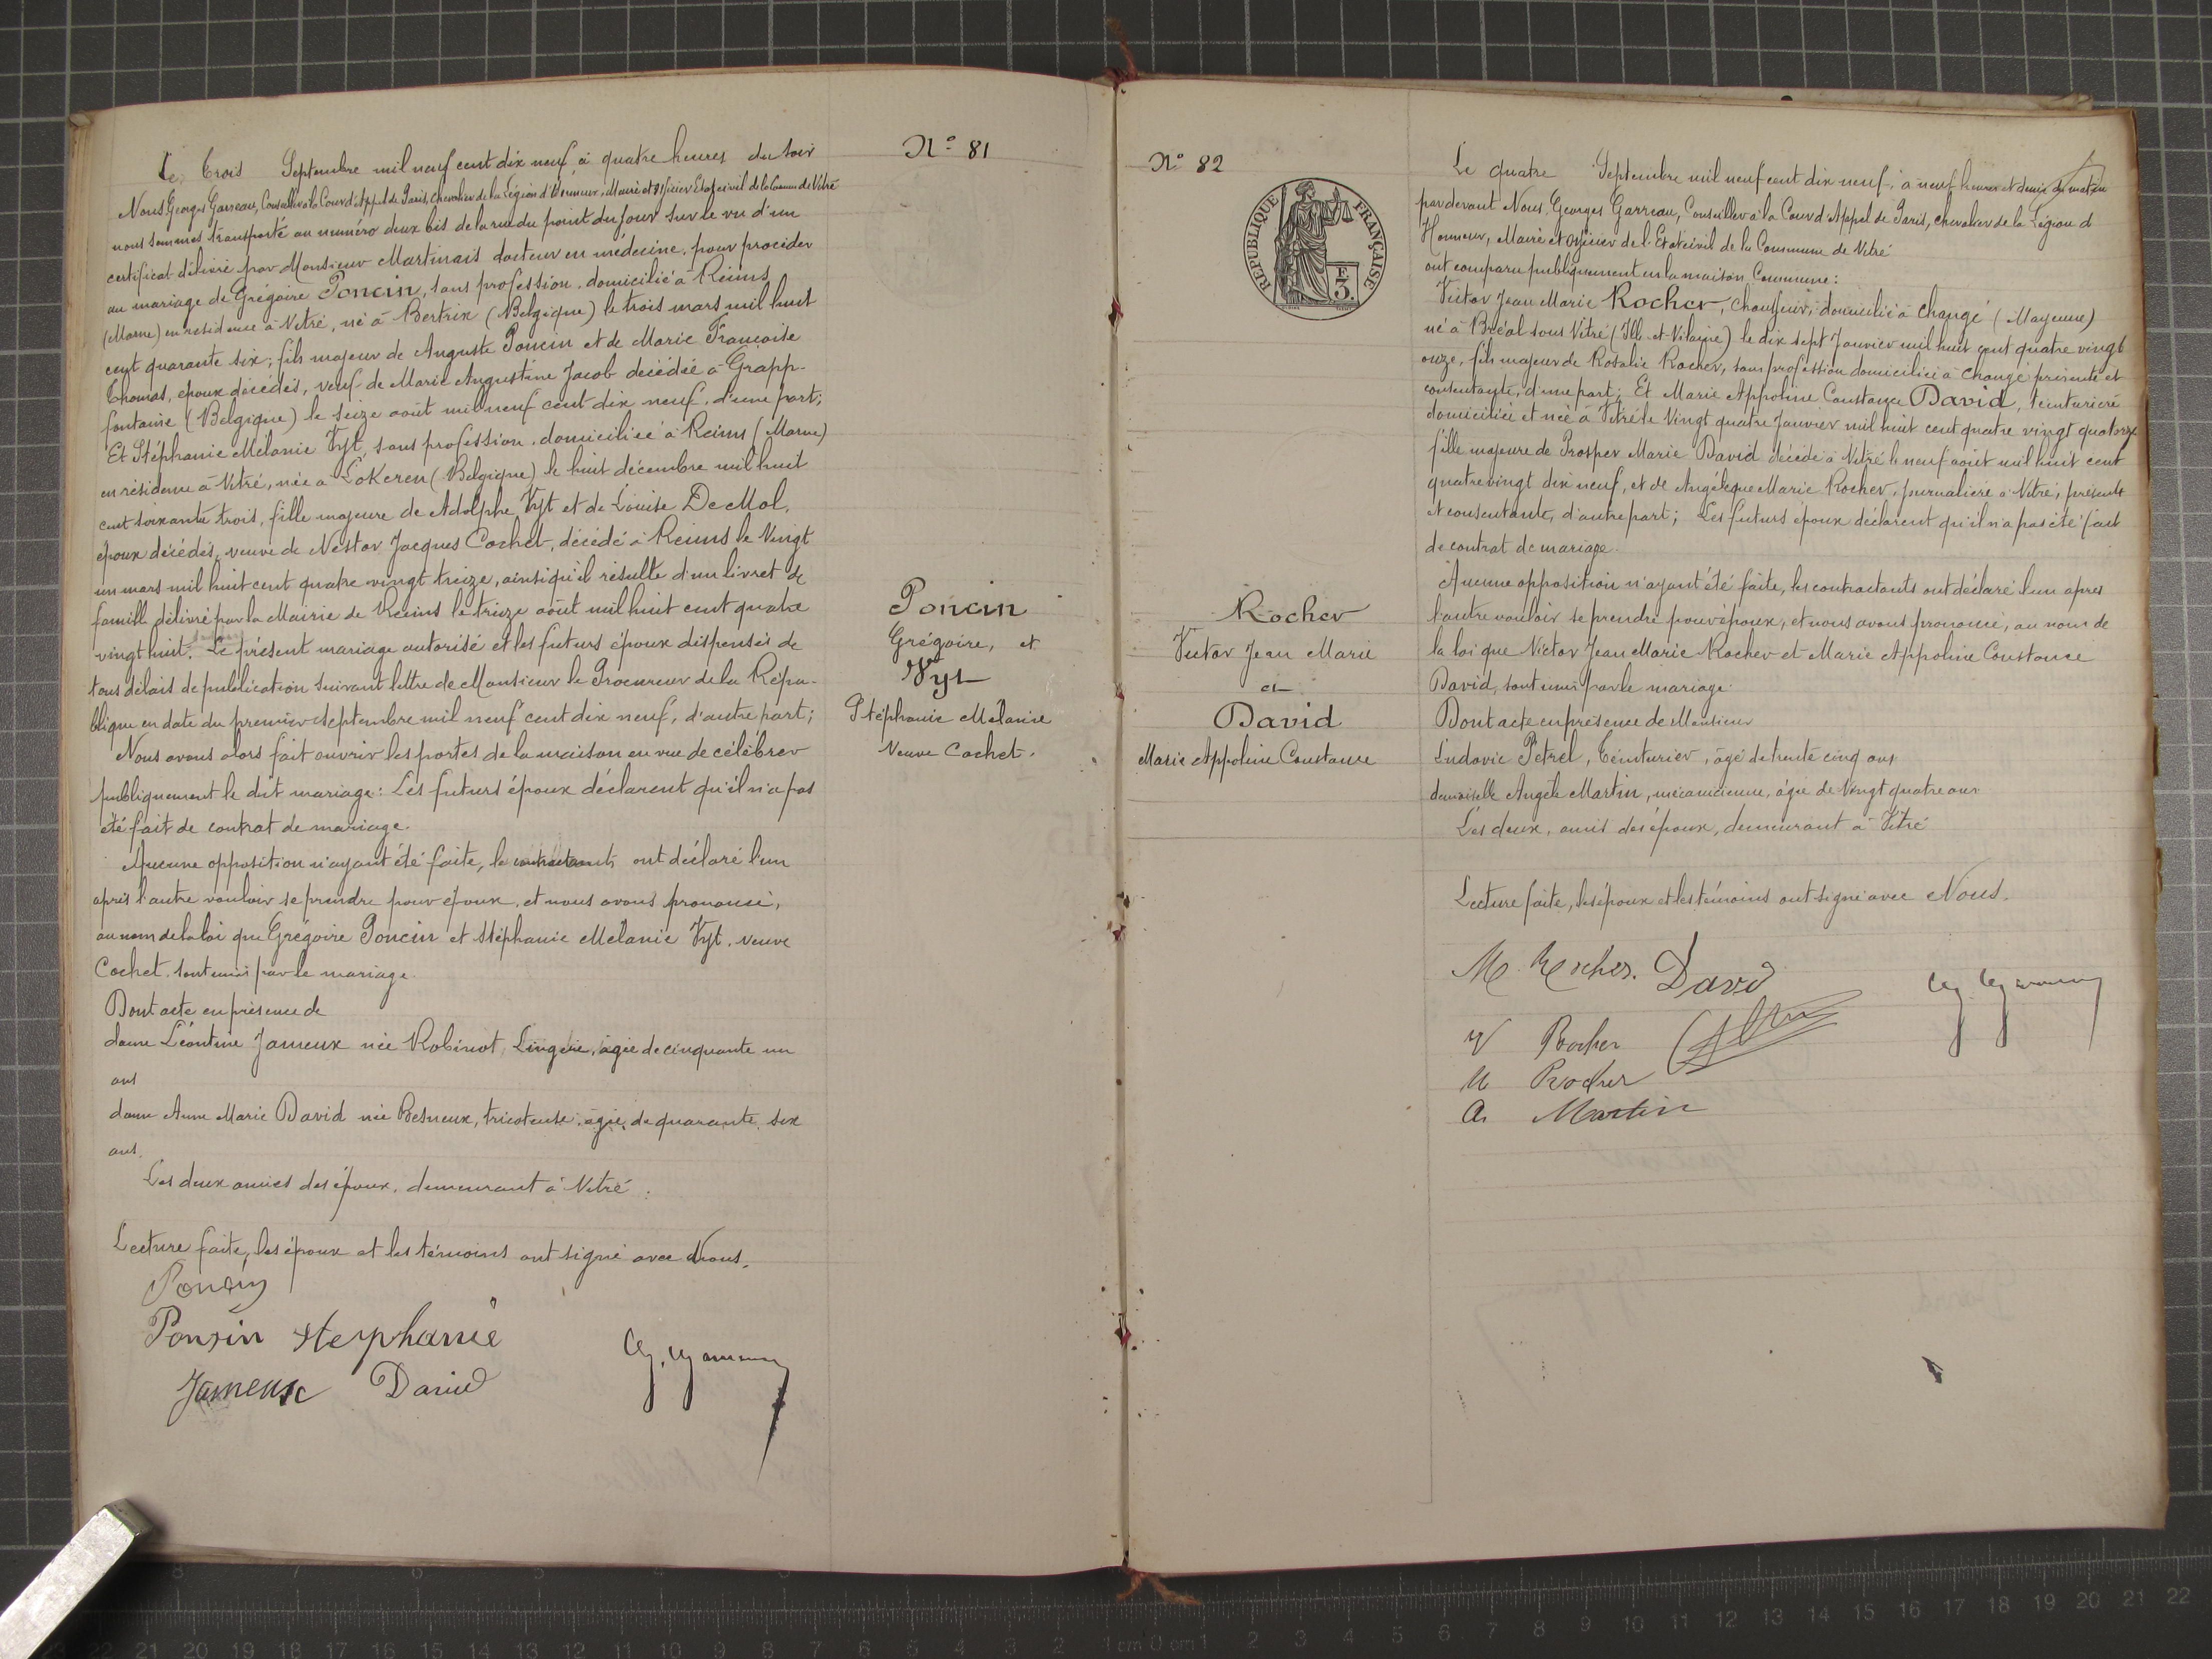 Nº 81
Le trois Septembre mil neuf cent dix neuf, à quatre heures du soir
Nous Georges Garreau, Conseiller à la Cour d'Appel de Paris, Chevalier de la Légion d'Honneur, Maire et Officier Etat civil de la Commune de Vitré
nous sommes transporté au numéro deux bis de la rue du point du jour sur le vu d'un
certificat délivré par Monsieur Martinais docteur en médecine, pour procéder
au mariage de Grégoire Poncin, sans profession, domicilié à Reims
(Marne) en résidence à Vitré, né à Bertrix (Belgique) le trois mars mil huit
cent quarante six; fils majeur de Auguste Poncin et de Marie Françoise
Thomas, époux décédés, veuf de Marie Augustine Jacob décédée à Grapp-
fontaine (Belgique) le seize août mil neuf cent dix neuf, d'une part;
Et Stéphanie Mélanie Vyt, sans profession, domiciliée à Reims (Marne)
en résidence à Vitré, née à Lokeren (Belgique) le huit décembre mil huit
cent soixante trois, fille majeure de Adolphe Vyt et de Louise De Mol,
époux décédés, veuve de Nestor Jacques Cochet, décédé à Reims le Vingt
un mars mil huit cent quatre vingt treize, ainsi qu'il résulte d'un livret de
famille délivré par la Mairie de Reims le treize août mil huit cent quatre
vingt huit. Le présent mariage autorisé et les futurs époux dispensés de
tous délais de publication suivant lettre de Monsieur le Procureur de la Répu-
blique en date du premier Septembre mil neuf cent dix neuf, d'autre part;
Nous avons alors fait ouvrir les portes de la maison en vue de célébrer
publiquement le dit mariage: Les futurs époux déclarent qu'il n'a pas
été fait de contrat de mariage.
Aucune opposition n'ayant été faite, les contractants ont déclaré l'un
après l'autre vouloir se prendre pour époux, et nous avons prononcé,
au nom de la loi que Grégoire Poncin et Stéphanie Mélanie Vyt, veuve
Cochet, sont unis par le mariage.
Dont acte en présence de
dame Léontine Jameux née Robinot, Lingère, âgée de cinquante un
ans
dame Anne Marie David née Besneux, tricoteuse, âgée de quarante six
ans.
Les deux amies des époux, demeurant à Vitré.
Lecture faite, les époux et les témoins ont signé avec Nous.
Poncin
Grégoire, et
Vyt
Stéphanie Mélanie
Veuve Cochet.
Poncin
Ponsin stephanie
Jameux David
Nº 82
REPUBLIQUE FRANÇAISE
F.
3.
Le quatre Septembre mil neuf cent dix neuf, à neuf heures et demie du matin
par devant Nous, Georges Garreau, Conseiller à la Cour d'Appel de Paris, chevalier de la Légion d'
Honneur, Maire et officier de l'Etat civil de la Commune de Vitré
ont comparu publiquement en la maison Commune:
Victor Jean Marie Rocher, Chauffeur, domicilié à Changé (Mayenne)
né à Bréal sous Vitré (Ille et Vilaine) le dix sept Janvier mil huit cent quatre vingt
onze, fils majeur de Rosalie Rocher, sans profession domiciliée à Changé présente et
consentante, d'une part; Et Marie Appoline Constance David, teinturière
domiciliée et née à Vitré le Vingt quatre Janvier mil huit cent quatre vingt quatorze
fille majeure de Prosper Marie David décédé à Vitré le neuf août mil huit cent
quatre vingt dix neuf, et de Angélique Marie Rocher, journalière à Vitré, présente
et consentante, d'autre part; Les futurs époux déclarent qu'il n'a pas été fait
de contrat de mariage.
Aucune opposition n'ayant été faite, les contractants ont déclaré l'un après
l'autre vouloir se prendre pour époux, et nous avons prononcé, au nom de
la loi que Victor Jean Marie Rocher et Marie Appoline Constance
David, sont unis par le mariage.
Dont acte en présence de Monsieur
Ludovic Pétrel, teinturier, âgé de trente cinq ans
demoiselle Angèle Martin, mécanicienne, âgée de Vingt quatre ans
Les deux, amis des époux, demeurant à Vitré
Lecture faite, les époux et les témoins ont signé avec Nous.
Rocher
Victor Jean Marie
et
David
Marie Appoline Constance
M. Rocher. David
V Rocher
Rocher
A. Martin